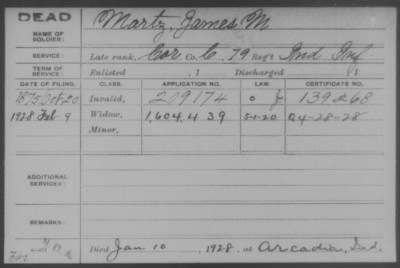 DEAD
NAME OF SOLDIER: Martz, James M
SERVICE: Late rank, Cor Co. C, 79 Reg't Ind Inf
TERM OF SERVICE: Enlisted , 1 Discharged , 1
DATE OF FILING. CLASS. APPLICATION NO. LAW. CERTIFICATE NO.
1875 Oct 20 Invalid, 209174 139268
1928 Feb-9 Widow, 1,604,439 5-1-20 A 4-28-28
Minor,
ADDITIONAL SERVICES:
REMARKS:
Died Jan 10, 1928, at Arcadia, Ind.